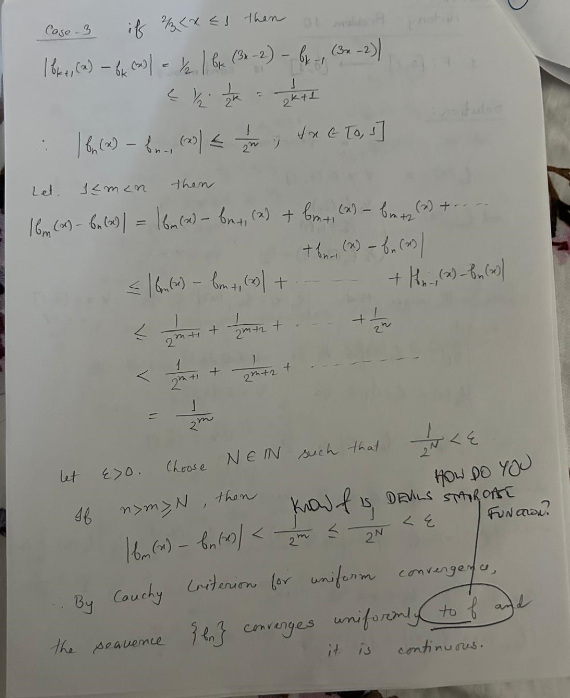 Case-3 if 2/3 < x ≤ 1 then
|f_{k+1}(x) - f_k(x)| = 1/2 |f_k(3x-2) - f_{k-1}(3x-2)|
≤ 1/2 · 1/2^k = 1/2^{k+1}
∴ |f_n(x) - f_{n-1}(x)| ≤ 1/2^n ; ∀ x ∈ [0, 1]
Let 1 ≤ m < n then
|f_m(x) - f_n(x)| = |f_m(x) - f_{m+1}(x) + f_{m+1}(x) - f_{m+2}(x) + .....
+ f_{n-1}(x) - f_n(x)|
≤ |f_m(x) - f_{m+1}(x)| + ........ + |f_{n-1}(x) - f_n(x)|
≤ 1/2^{m+1} + 1/2^{m+2} + ........ + 1/2^n
< 1/2^{m+1} + 1/2^{m+2} + ..............
= 1/2^m
Let ε > 0. Choose N ∈ ℕ such that 1/2^N < ε
If n > m ≥ N, then
|f_m(x) - f_n(x)| < 1/2^m ≤ 1/2^N < ε
HOW DO YOU
KNOW f IS DEVILS STAIRCASE
FUNCTION?
∴ By Cauchy Criterion for uniform convergence,
the sequence {f_n} converges uniformly to f and
it is continuous.